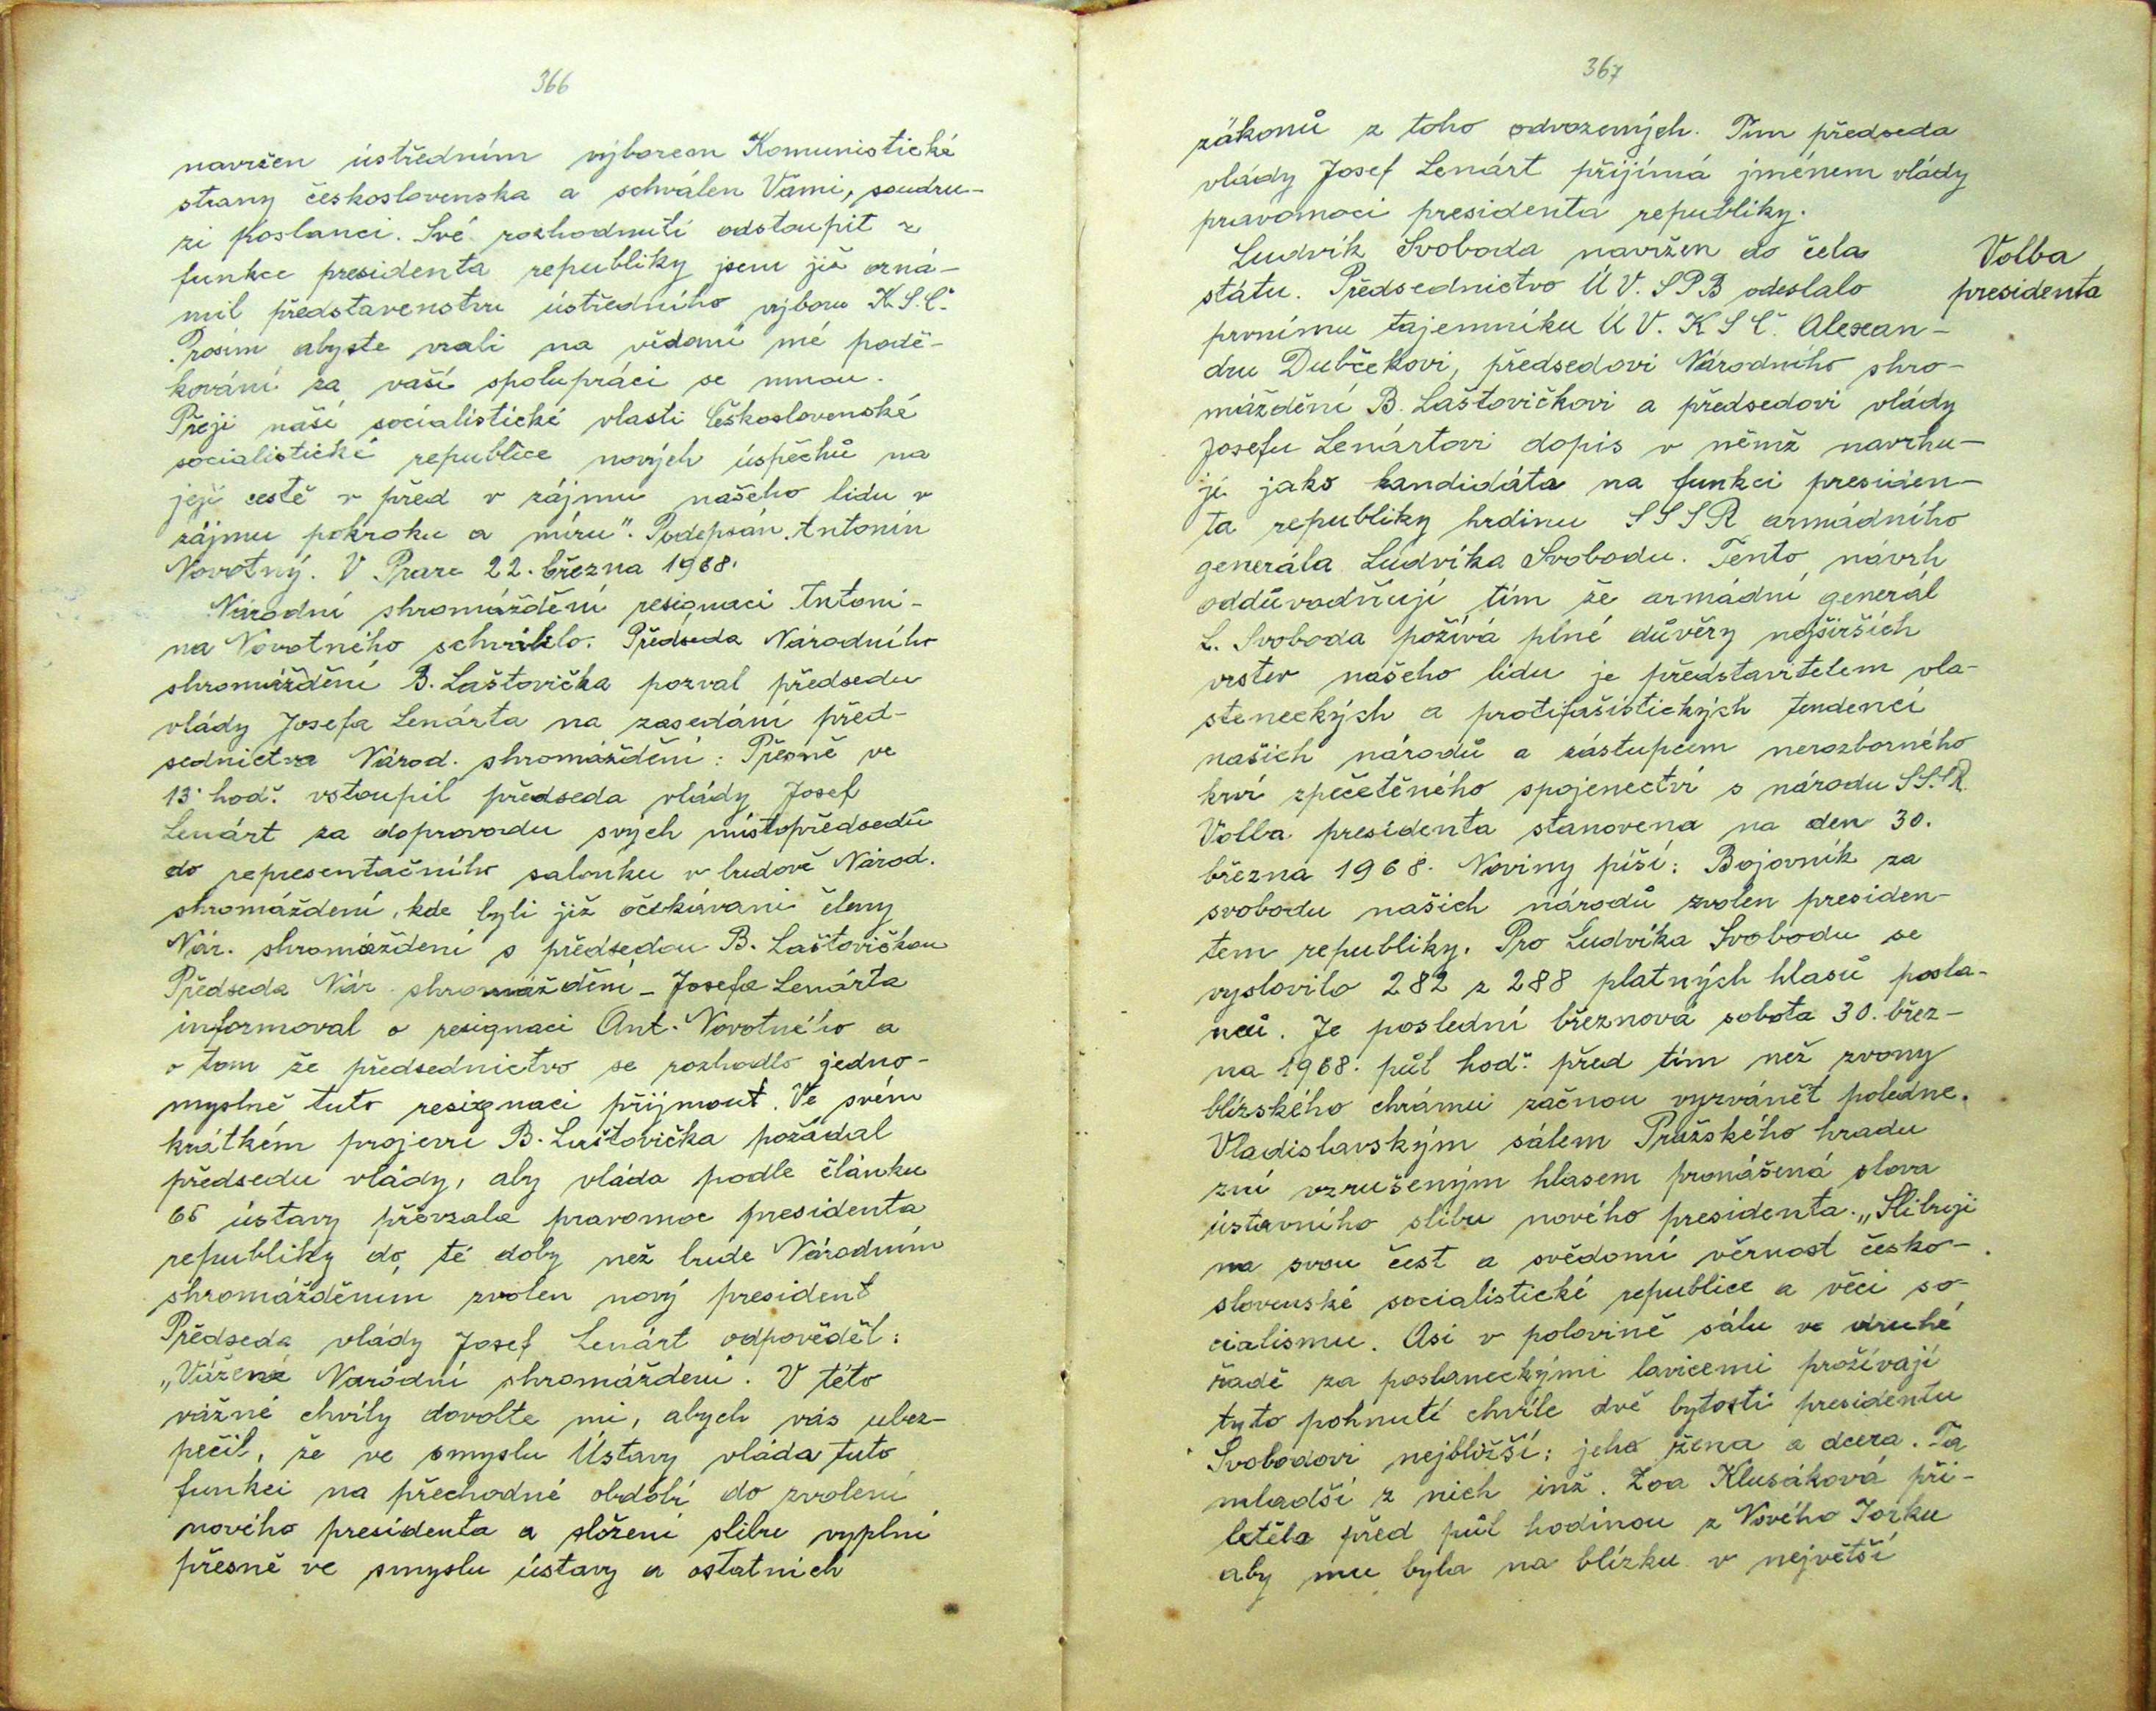 366
navržen ústředním výborem Komunistické
strany československa a schválen Vámi, soudru-
zi poslanci. Své rozhodnutí odstoupit z
funkce presidenta republiky jsem již ozná-
mil představenstvu ústředního výboru K.S.Č.
Prosím abyste vzali na vědomí mé podě-
kování za vaší spolupráci se mnou.
Přeji naší socialistické vlasti Československé
socialistické republice nových úspěchů na
její cestě v před v zájmu našeho lidu v
zájmu pokroku a míru". Podepsán Antonín
Novotný. V Praze 22. března 1968.
Národní shromáždění resignaci Antoní-
na Novotného schválilo. Předseda Národního
shromáždění B. Laštovička pozval předsedu
vlády Josefa Lenárta na zasedání před-
sednictva Národ. shromáždění: Přesně ve
13 hod. vstoupil předseda vlády Josef
Lenárt za doprovodu svých místopředsedů
do representačního salonku v budově Národ.
shromáždení, kde byli již očekáváni členy
Nár. shromáždení s předsedou B. Laštovičkou
Předseda Nár. shromáždění - Josefa Lenárta
informoval o resignaci Ant. Novotného a
o tom že předsednictvo se rozhodlo jedno-
myslně tuto resignaci přijmout. Ve svém
krátkém projevu B. Laštovička požádal
předsedu vlády, aby vláda podle článku
65 ústavy převzala pravomoc presidenta
republiky do té doby než bude Národním
shromážděním zvolen nový president
Předseda vlády Josef Lenárt odpověděl:
„Vážené Národní shromáždění. V této
vážné chvíly dovolte mi, abych vás ubez-
pečil, že ve smyslu Ústavy vláda tuto
funkci na přechodné období do zvolení
nového presidenta a složení slibu vyplní
přesně ve smyslu ústavy a ostatních
367
zákonů z toho odvozených. Tím předseda
vlády Josef Lenárt přijímá jménem vlády
pravomoci presidenta republiky.
Ludvík Svoboda navržen do čela
Volba
státu. Předsednictvo ÚV. SPB odeslalo
presidenta
prvnímu tajemníku ÚV. KSČ. Alexan-
dru Dubčekovi, předsedovi Národního shro-
máždění B. Laštovičkovi a předsedovi vlády
Josefu Lenártovi dopis v němž navrhu-
jí jako kandidáta na funkci presiden-
ta republiky hrdinu SSSR armádního
generála Ludvíka Svobodu. Tento návrh
oddůvodňují tím že armádní generál
L. Svoboda požívá plné důvěry nejširších
vrstev našeho lidu je představitelem vla-
steneckých a protifašistických tendencí
našich národů a zástupcem nerozborného
krví zpečetěného spojenectví s národu SSSR.
Volba presidenta stanovena na den 30.
března 1968. Noviny píší: Bojovník za
svobodu našich národů zvolen presiden-
tem republiky. Pro Ludvíka Svobodu se
vyslovilo 282 z 288 platných hlasů posla-
nců. Je poslední březnová sobota 30. břez-
na 1968. půl hod. před tím než zvony
blízského chrámu začnou vyzvánět poledne.
Vladislavským sálem Pražského hradu
zní vzrušeným hlasem pronášená slova
ústavního slibu nového presidenta. „Slibuji
na svou čest a svědomí věrnost česko-
slovenské socialistické republice a věci so-
cialismu. Asi v polovině sálu ve druhé
řadě za poslaneckými lavicemi prožívají
tyto pohnutí chvíle dvě bytosti presidentu
Svobodovi nejbližší: jeho žena a dcera. Ta
mladší z nich inž. Zoa Klusáková při-
letěla před půl hodinou z Nového Jorku
aby mu byla na blízku v největší